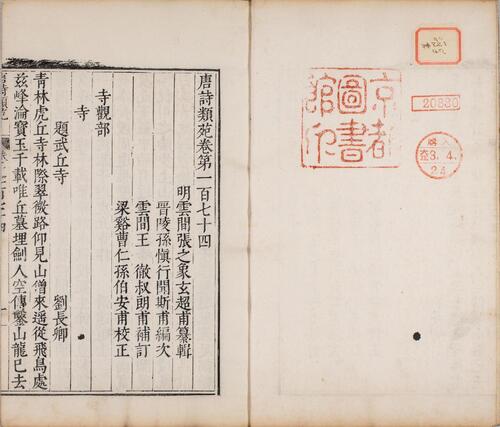 京都
圖書
館印
唐詩類苑卷第一百七十四
明雲間張之象玄超甫纂輯
晉陵孫慎行聞斯甫編次
雲間王 徹叔朗甫補訂
梁谿曹仁孫伯安甫校正
寺觀部
寺
題武丘寺 劉長卿
青林虎丘寺林際翠微路仰見山僧來遥從飛鳥處
兹峰淪寶玉千載唯丘墓埋劍人空傳鑿山龍已去